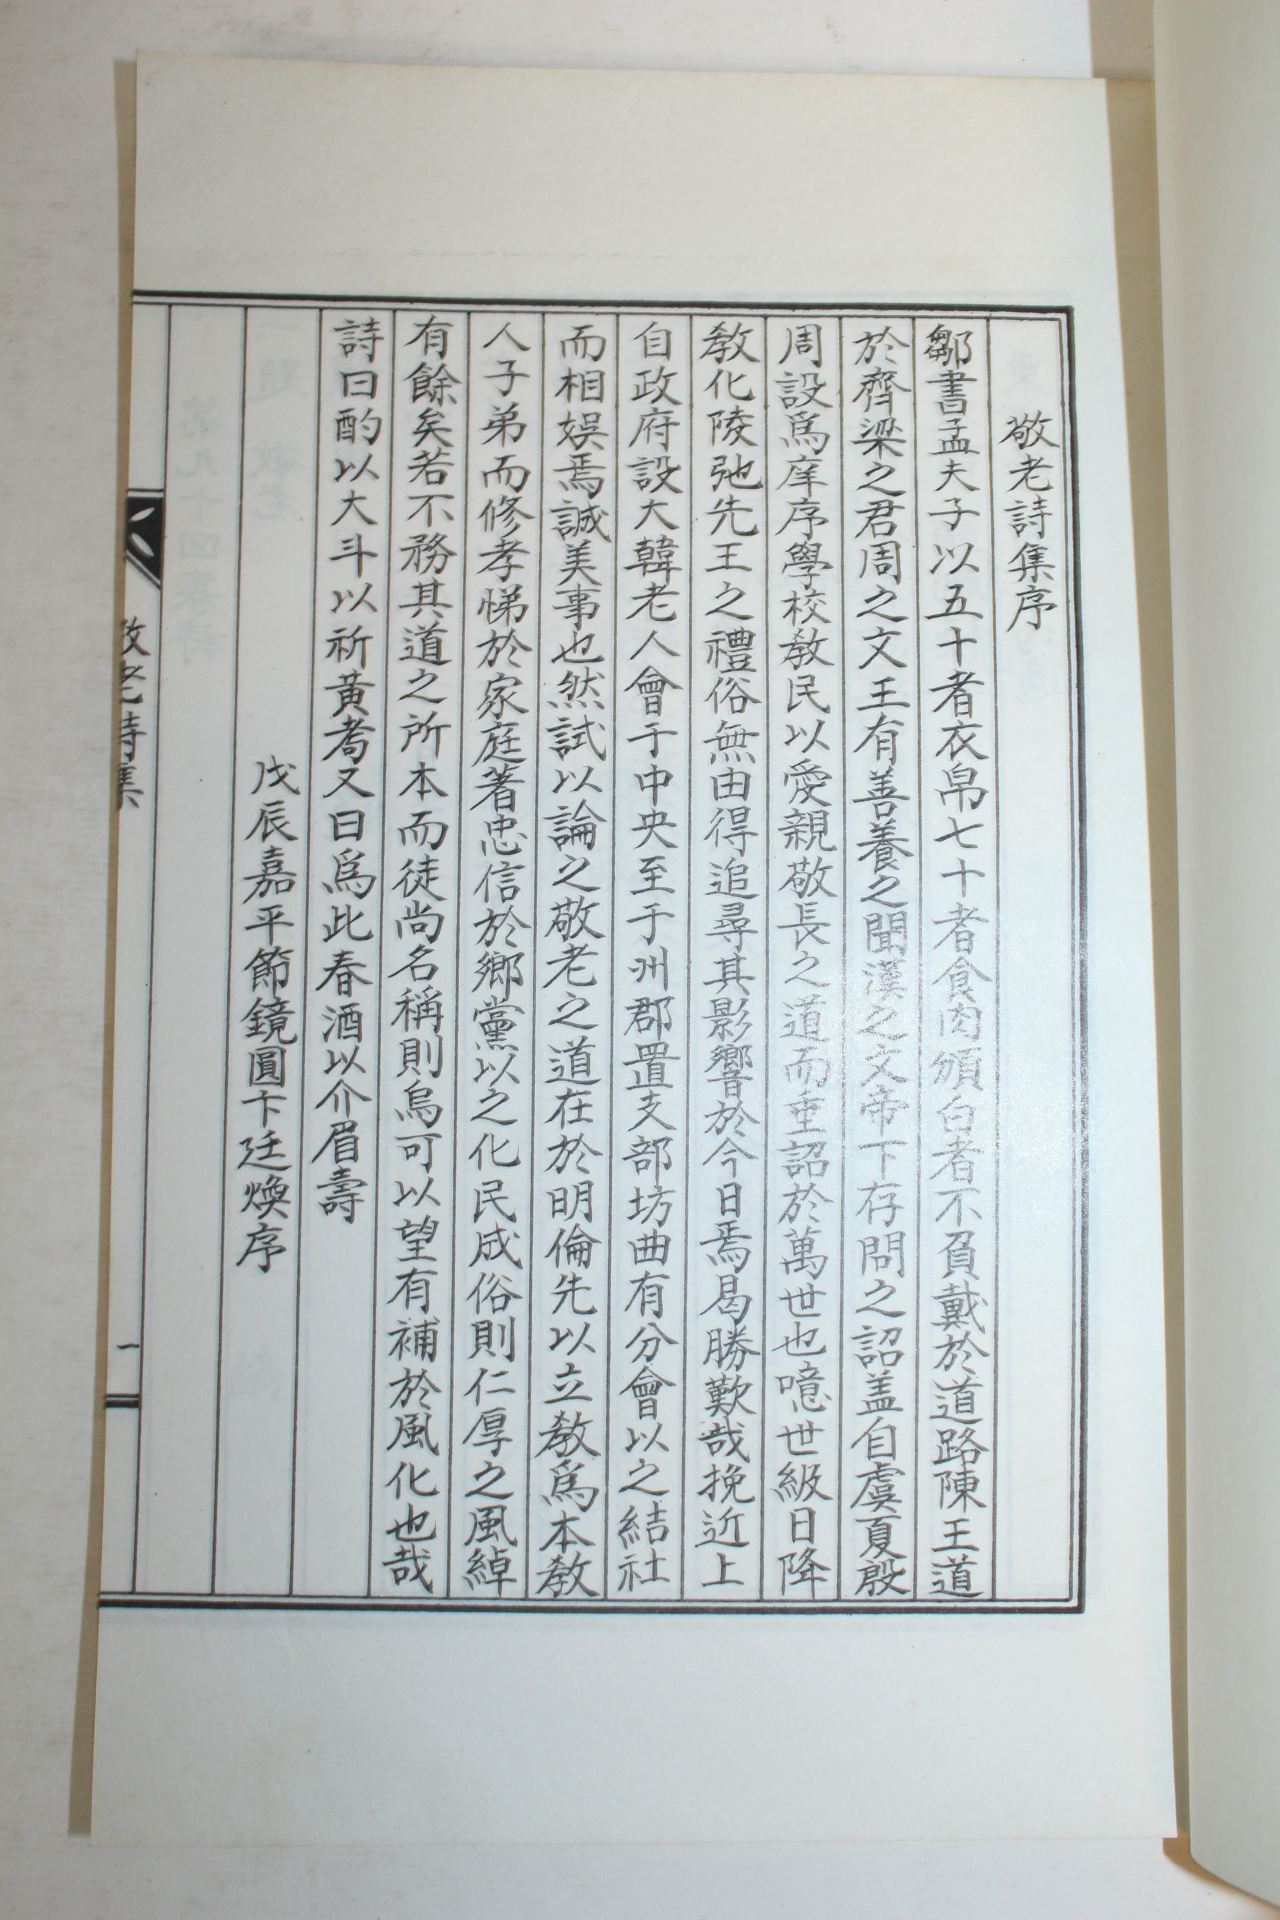 敬老詩集序
鄒書孟夫子以五十者衣帛七十者食肉頒白者不負戴於道路陳王道
於齊梁之君周之文王有善養之聞漢之文帝下存問之詔盖自虞夏殷
周設爲庠序學校教民以愛親敬長之道而重詔於萬世也噫世級日降
教化陵弛先王之禮俗無由得追尋其影響於今日焉曷勝歎哉挽近上
自政府設大韓老人會于中央至于州郡置支部坊曲有分會以之結社
而相娛焉誠美事也然試以論之敬老之道在於明倫先以立教爲本教
人子弟而修孝悌於家庭著忠信於鄉黨以之化民成俗則仁厚之風綽
有餘矣若不務其道之所本而徒尚名稱則烏可以望有補於風化也哉
詩曰酌以大斗以祈黃耉又曰爲此春酒以介眉壽
戊辰嘉平節鏡圓卞廷煥序
敬老詩集
一